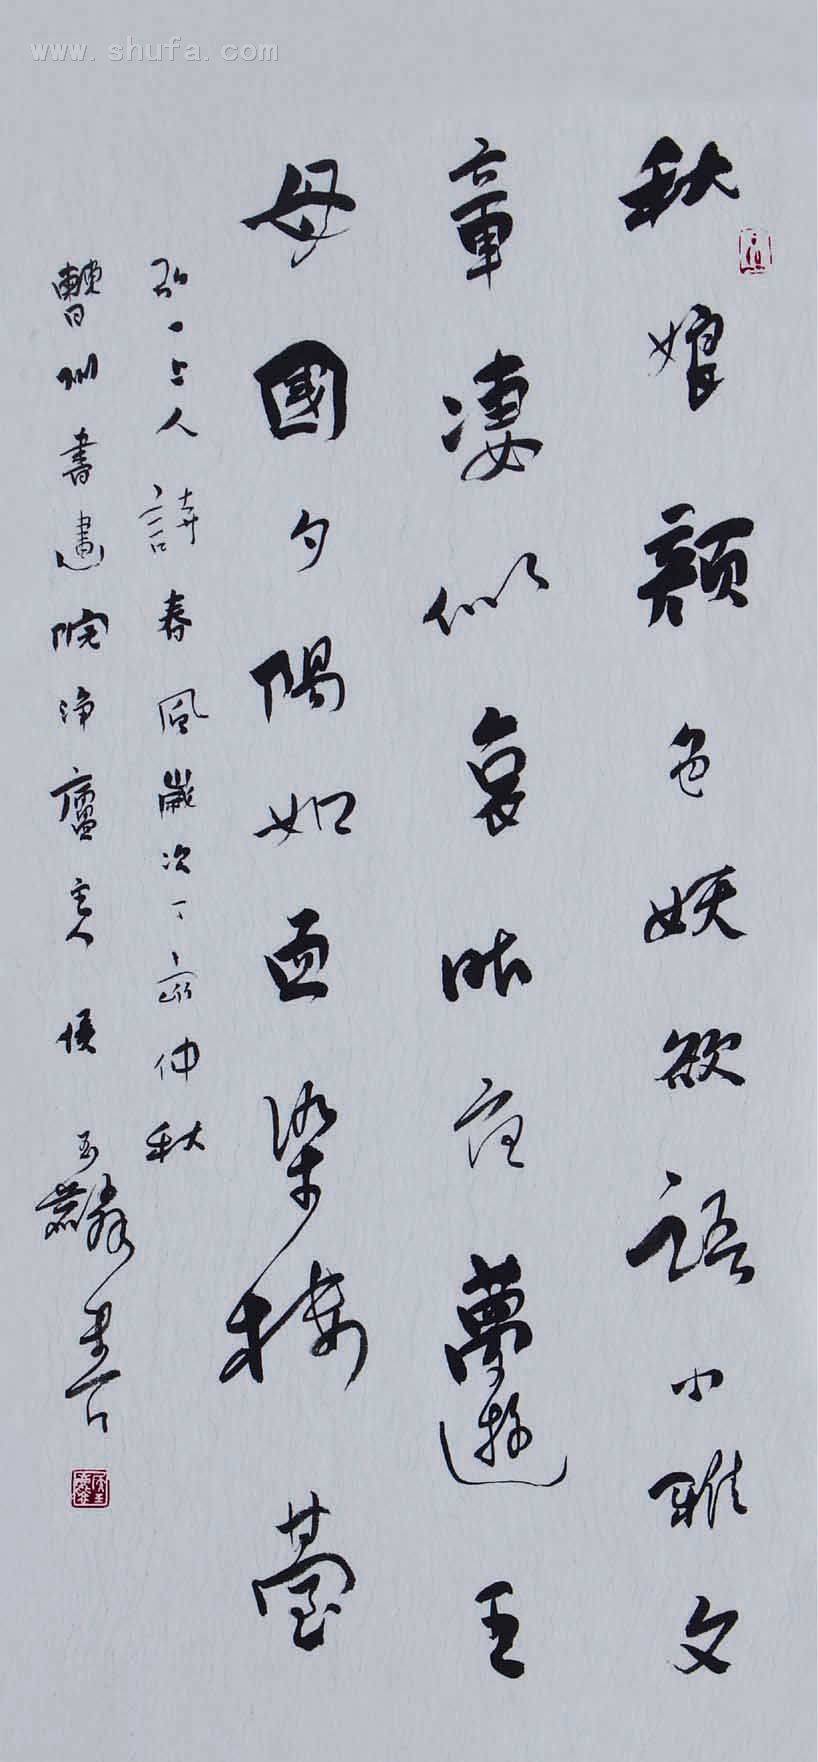 www.shufa.com
秋娘顏色妖欲語小雅文
章凄似哀昨夜夢遊王
母國夕陽如血染樓臺
弘一上人詩春風歲次丁亥仲秋
曹州書畫院淨廬主人侯玉麟書